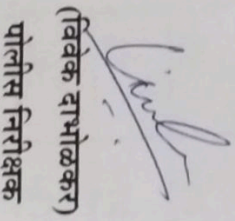 (विवेक दाभोळकर)
पोलीस निरीक्षक